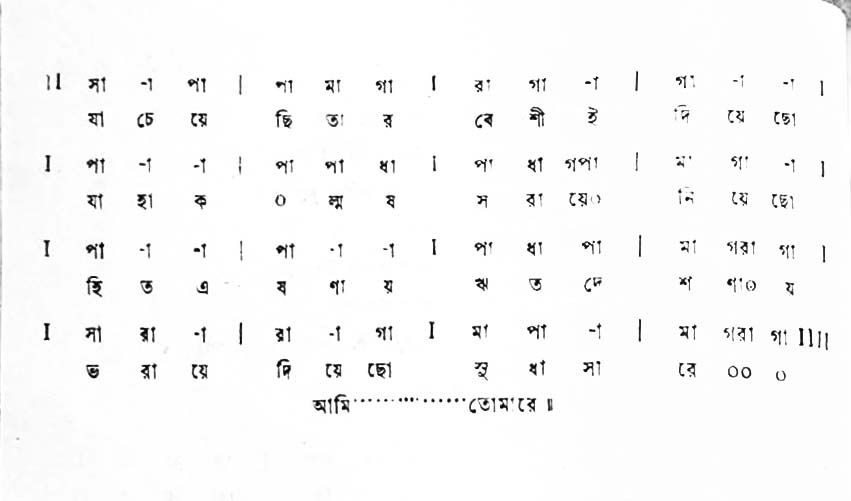 II সা -া পা | পা মা গা I রা গা -া | গা -া -া I
যা চে য়ে ছি তা র বে শী ই দি য়ে ছো
I পা -া -া | পা পা ধা I পা ধা গপা | মা গা -া I
যা হা ক ০ ল্ম ষ স রা য়ে০ নি য়ে ছো
I পা -া -া | পা -া -া I পা ধা পা | মা গরা গা I
হি ত এ ষ ণা য় ঋ ত দে শ ণা০ য
I সা রা -া | রা -া গা I মা পা -া | মা গরা গা IIII
ভ রা য়ে দি য়ে ছো সু ধা সা রে ০০ ০
আমি·················তোমারে ॥